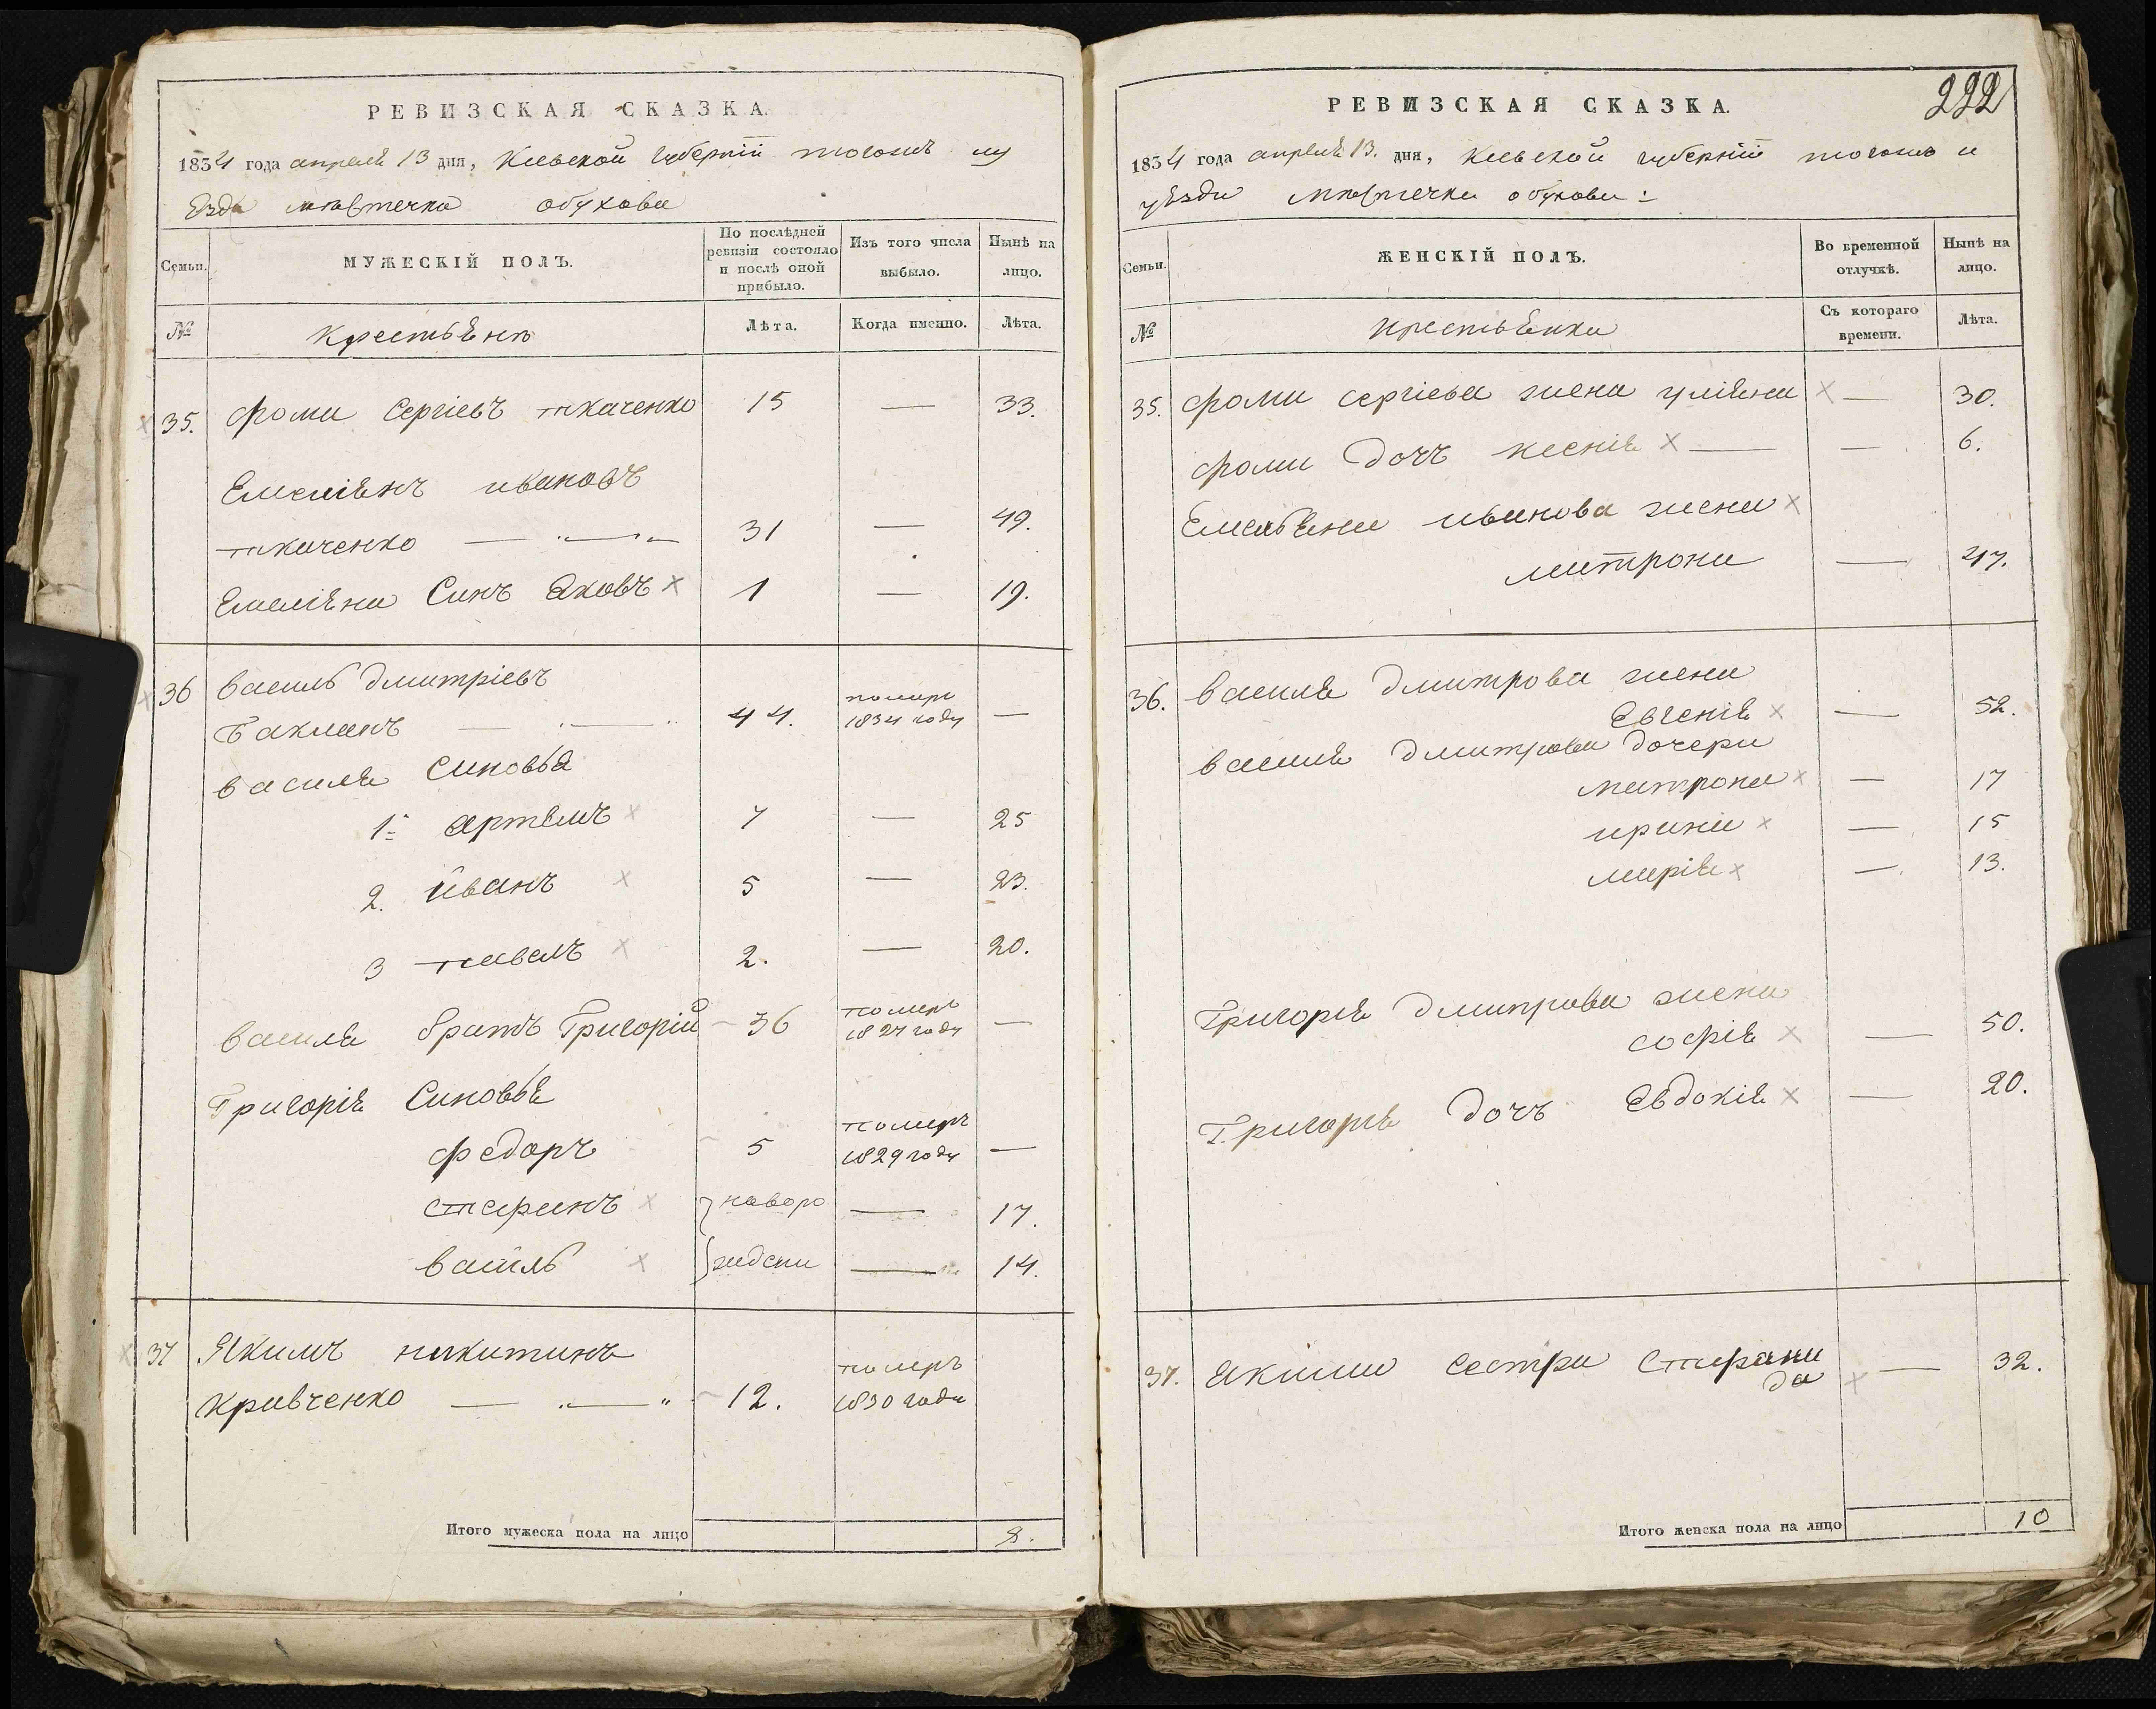 РЕВИЗСКАЯ СКАЗКА.
1834 года апреля 13 дня, Киевской губернии тогожъ у
Езда местечка обухова
Семьи.
МУЖЕСКІЙ ПОЛЪ.
По послѣдней ревизіи состояло и послѣ оной прибыло.
Изъ того числа выбыло.
Нынѣ на лицо.
№
крестьяне
Лѣта.
Когда именно.
Лѣта.
35. фома Сергіевъ ткаченко 15 — 33.
Емеліянъ ивановъ
ткаченко — 31 — 49.
Емеліяна Синъ Яковъ × 1 — 19.
36 василь дмитріевъ
Бакланъ — 44. померъ 1834 году —
василя Синовья
1. артемъ × 7 — 25
2. иванъ × 5 — 23.
3 павелъ × 2. — 20.
василя братъ Григорій 36 померъ 1827 году —
Григорія Синовья
федоръ 5 померъ 1829 году —
стефанъ × новоро — 17.
василь × жденн — 14.
37 Якимъ никитинъ
кривченко — 12. померъ 1830 года
Итого мужеска пола на лицо 8.
222
РЕВИЗСКАЯ СКАЗКА.
1834 года апреля 13. дня, Киевской губерніи тогожъ и
уѣзда местечка обухова:
Семьи.
ЖЕНСКІЙ ПОЛЪ.
Во временной отлучкѣ.
Нынѣ на лицо.
№
крестьянки
Съ котораго времени.
Лѣта.
35. фомы сергіева жена улияна × — 30.
фомы дочъ ксенія × — — 6.
Емельяна иванова жена ×
матрона — 47.
36. василя дмитрова жена
Евгенія × — 52.
василя дмитрова дочери
матрона × — 17
ирина × — 15
марія × — 13.
Григорія дмитрова жена
софія × — 50.
Григорія дочъ Евдокія × — 20.
37. якима сестра Стефани
да × — 32.
Итого женска пола на лицо 10